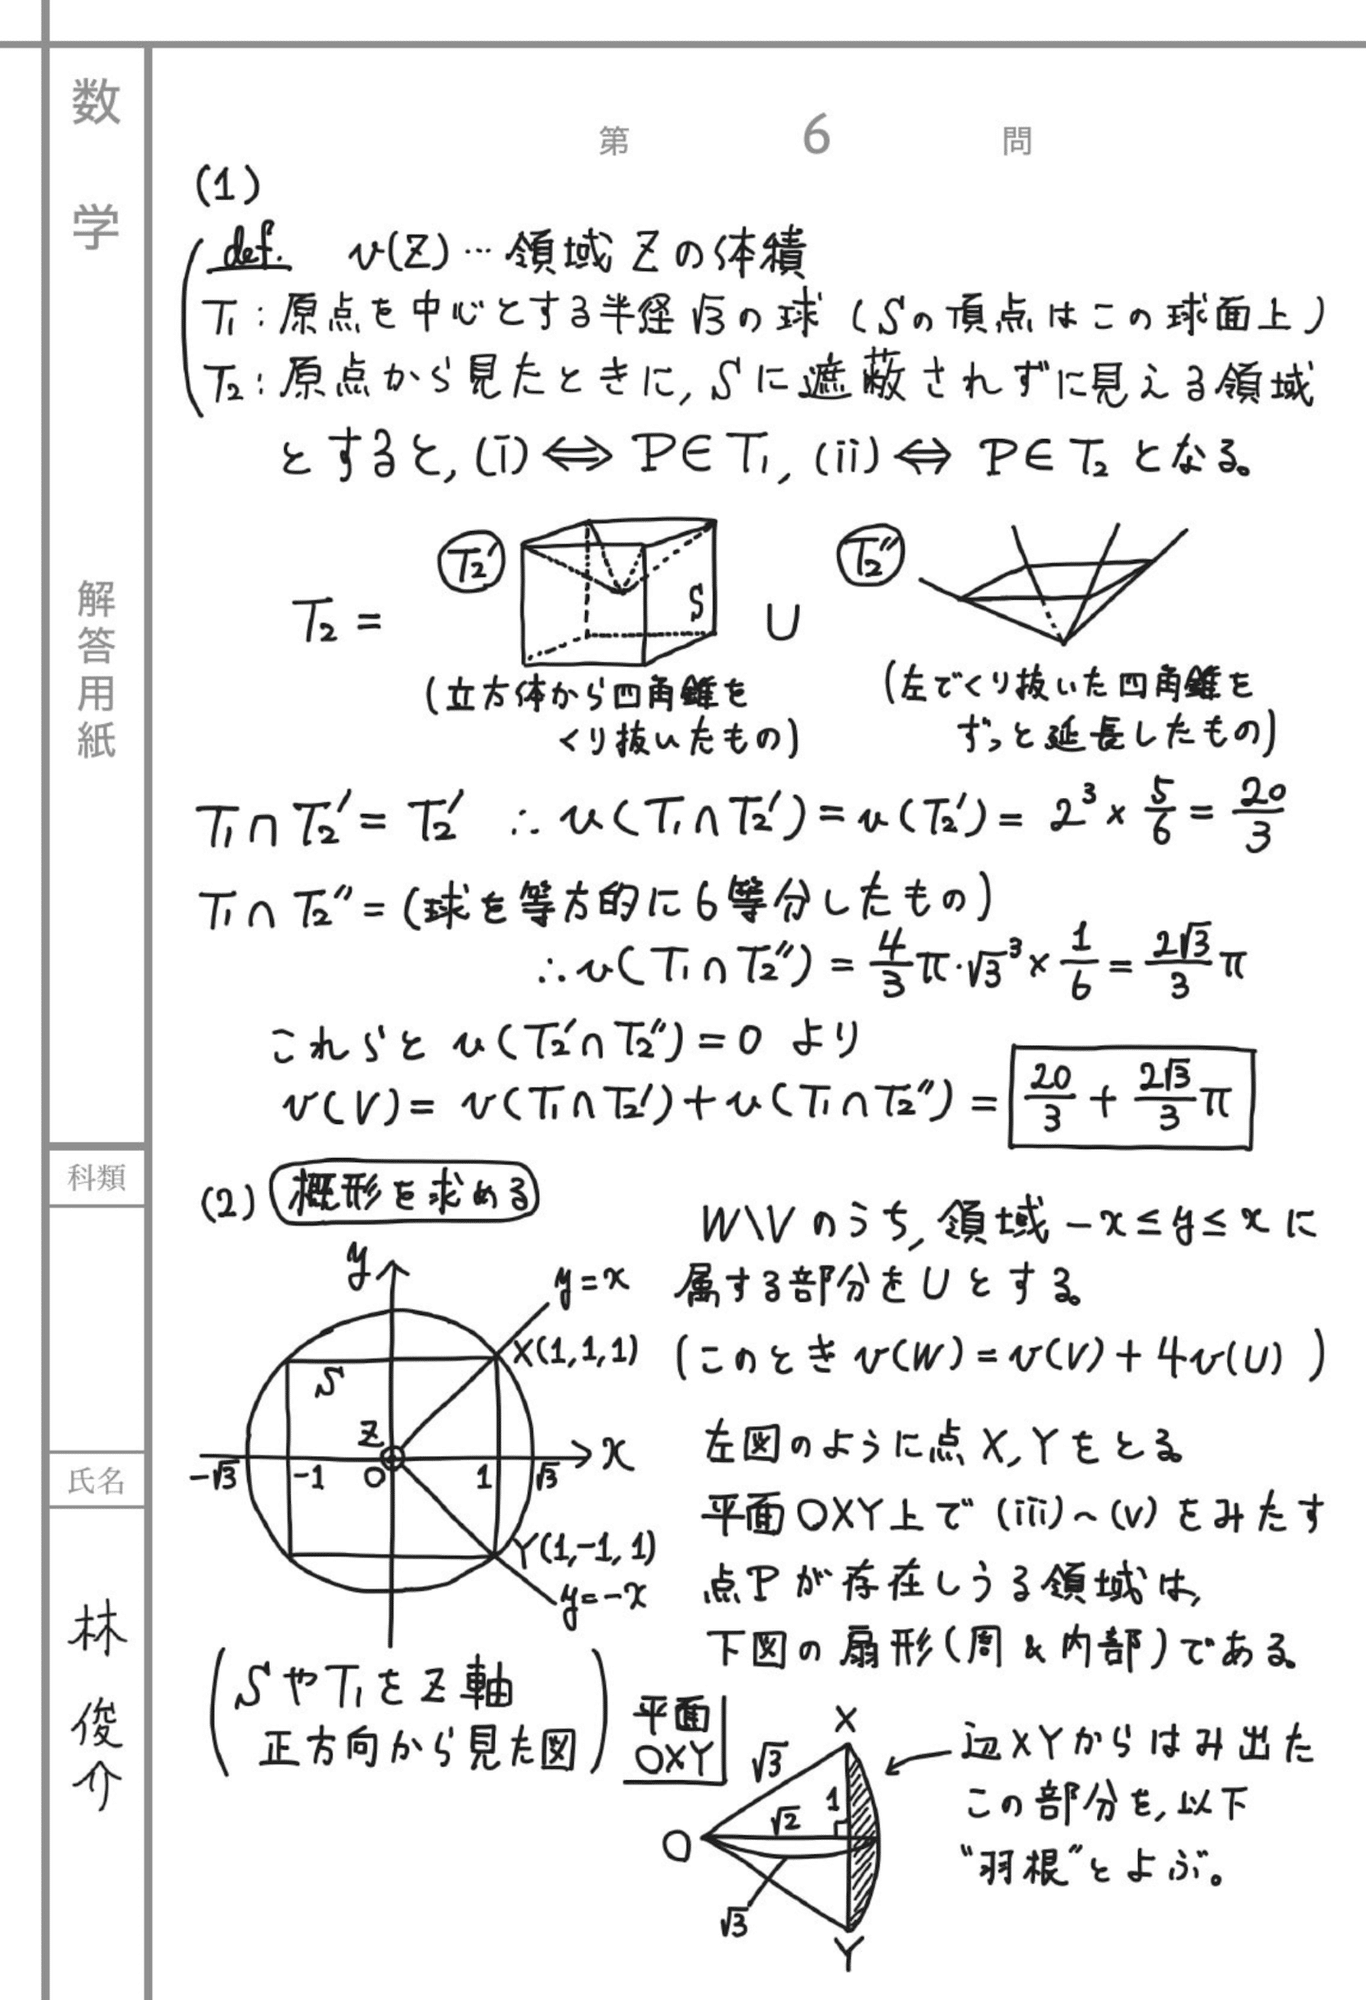 数学
解答用紙
科類
氏名
林俊介
第 6 問
(1)
def. v(Z)…領域Zの体積
T₁:原点を中心とする半径√3の球(Sの頂点はこの球面上)
T₂:原点から見たときに,Sに遮蔽されずに見える領域
とすると,(i)⇔P∈T₁,(ii)⇔P∈T₂となる。
T₂ = T₂′ S ∪ T₂″
(立方体から四角錐を
くり抜いたもの)
(左でくり抜いた四角錐を
ずっと延長したもの)
T₁∩T₂′=T₂′ ∴v(T₁∩T₂′)=v(T₂′)=2³×5/6=20/3
T₁∩T₂″=(球を等方的に6等分したもの)
∴v(T₁∩T₂″)=4/3π·√3³×1/6=2√3/3π
これらとv(T₂′∩T₂″)=0より
v(V)=v(T₁∩T₂′)+v(T₁∩T₂″)=20/3+2√3/3π
(2) 概形を求める
y
y=x
X(1,1,1)
S
Z
O
-√3
-1
1
√3
x
Y(1,-1,1)
y=-x
(SやT₁をZ軸
正方向から見た図)
W\Vのうち,領域-x≤y≤xに
属する部分をUとする。
(このときv(W)=v(V)+4v(U))
左図のように点X,Yをとる。
平面OXY上で(iii)~(v)をみたす
点Pが存在しうる領域は,
下図の扇形(周&内部)である。
平面
OXY
X
√3
1
√2
O
√3
Y
辺XYからはみ出た
この部分を,以下
“羽根”とよぶ。